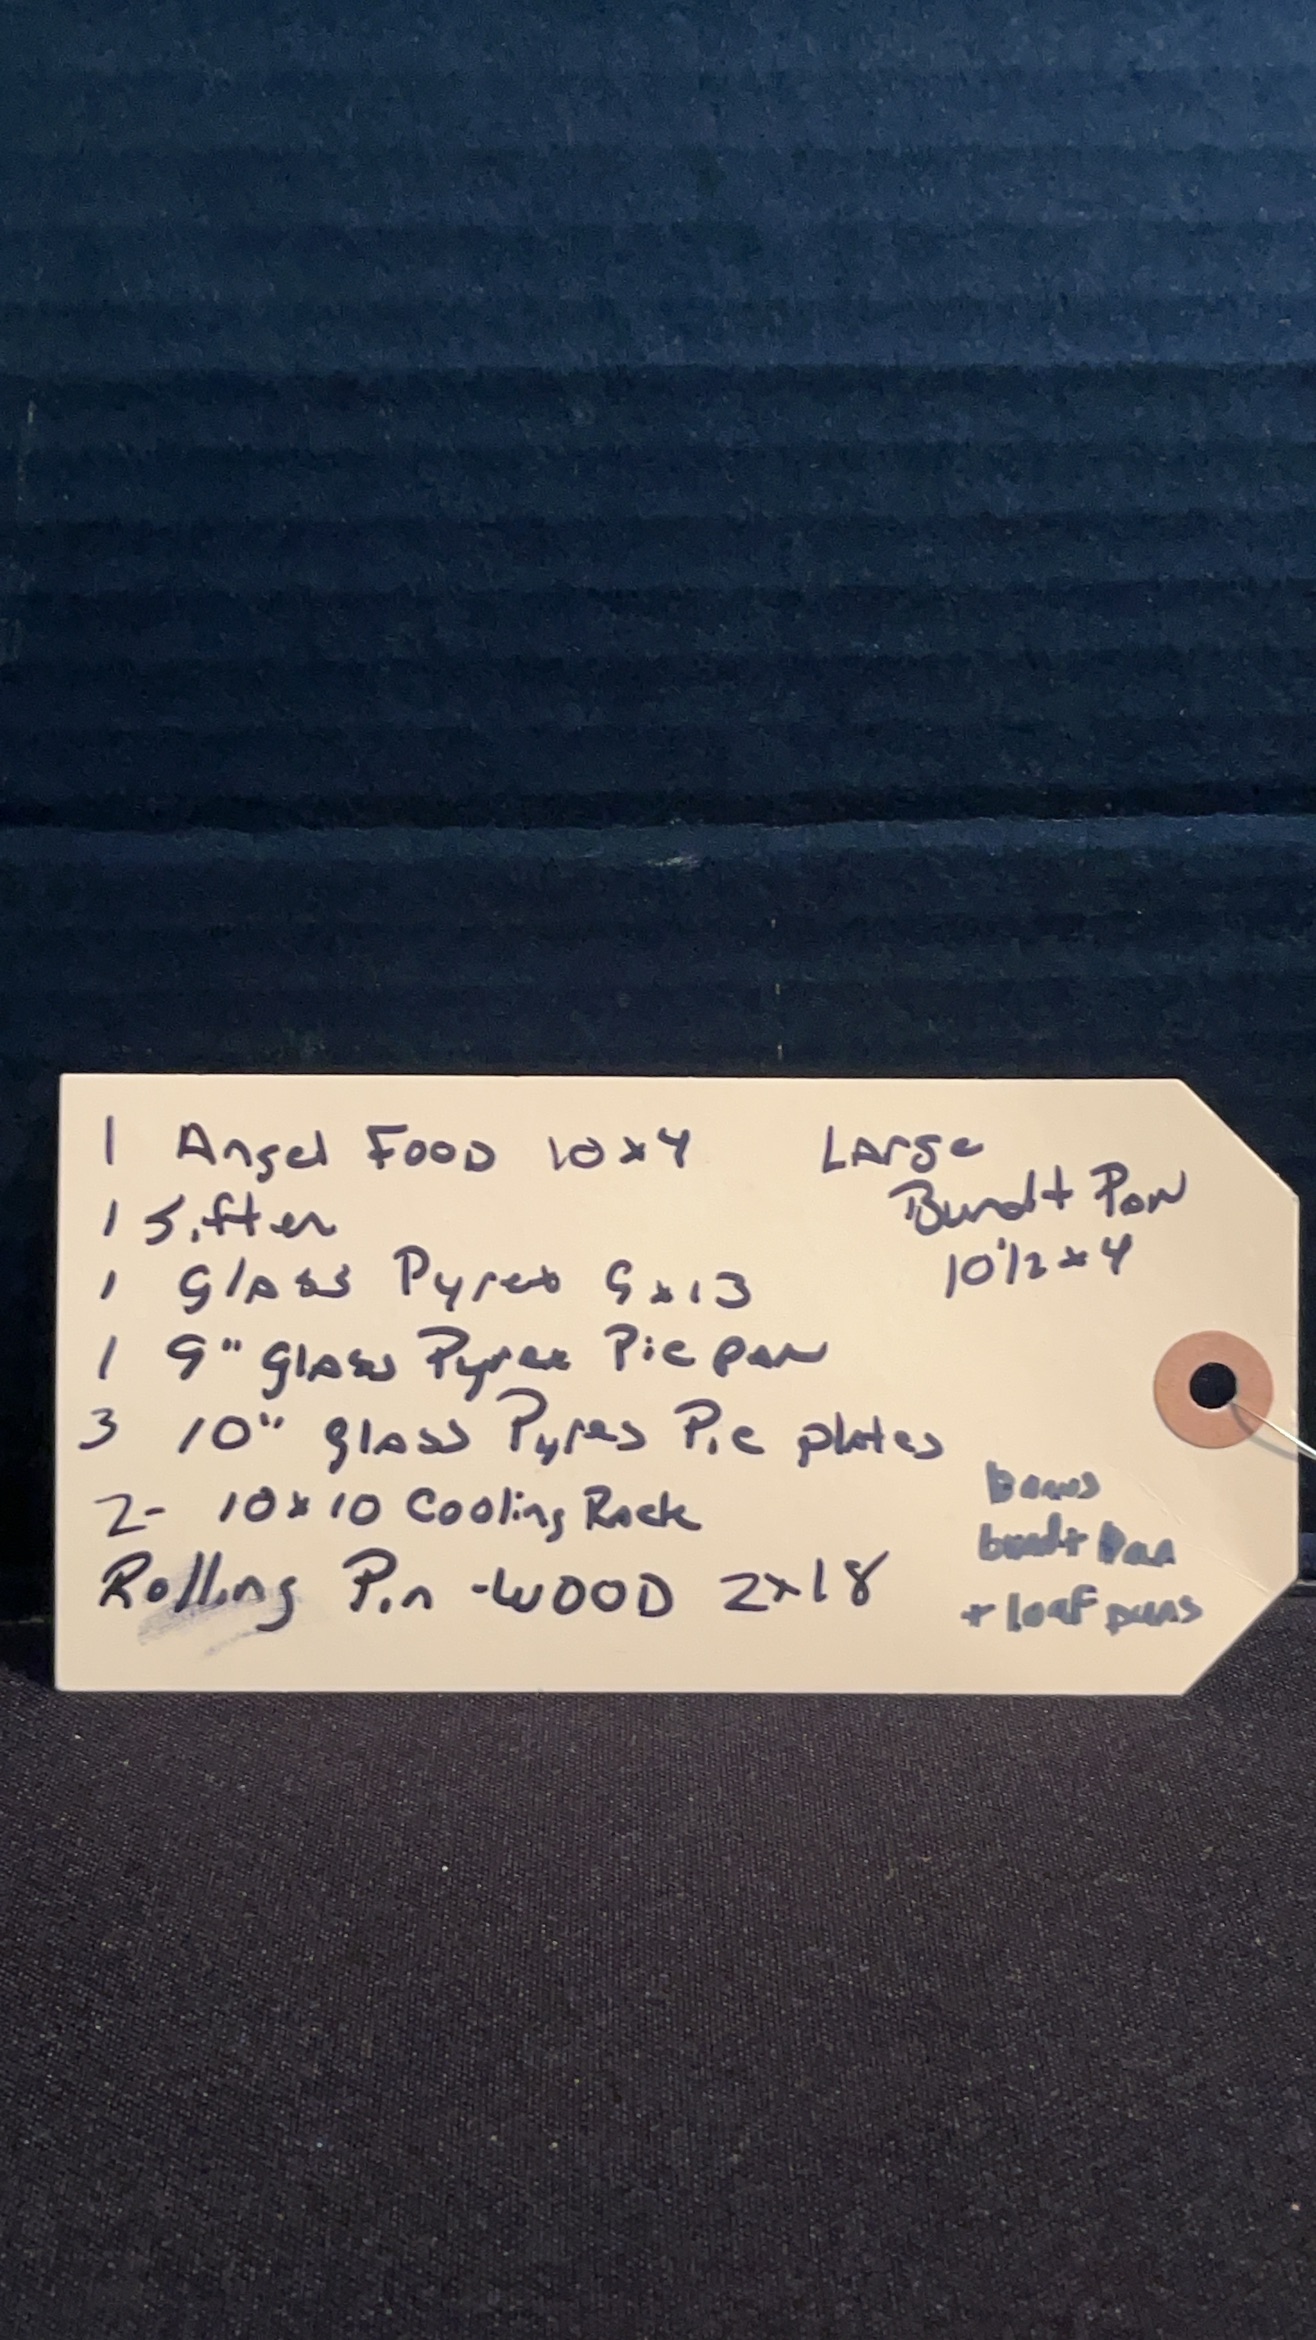 1 Angel FOOD 10x4
1 Sifter
1 Glass Pyrex 9x13
1 9" glass Pyrex Pie pan
3 10" glass Pyrex Pie plates
2- 10x10 Cooling Rack
Rolling Pin -WOOD 2x18
Large
Bundt Pan
10 1/2 x 4
bonus
bundt Pan
+ loaf pans